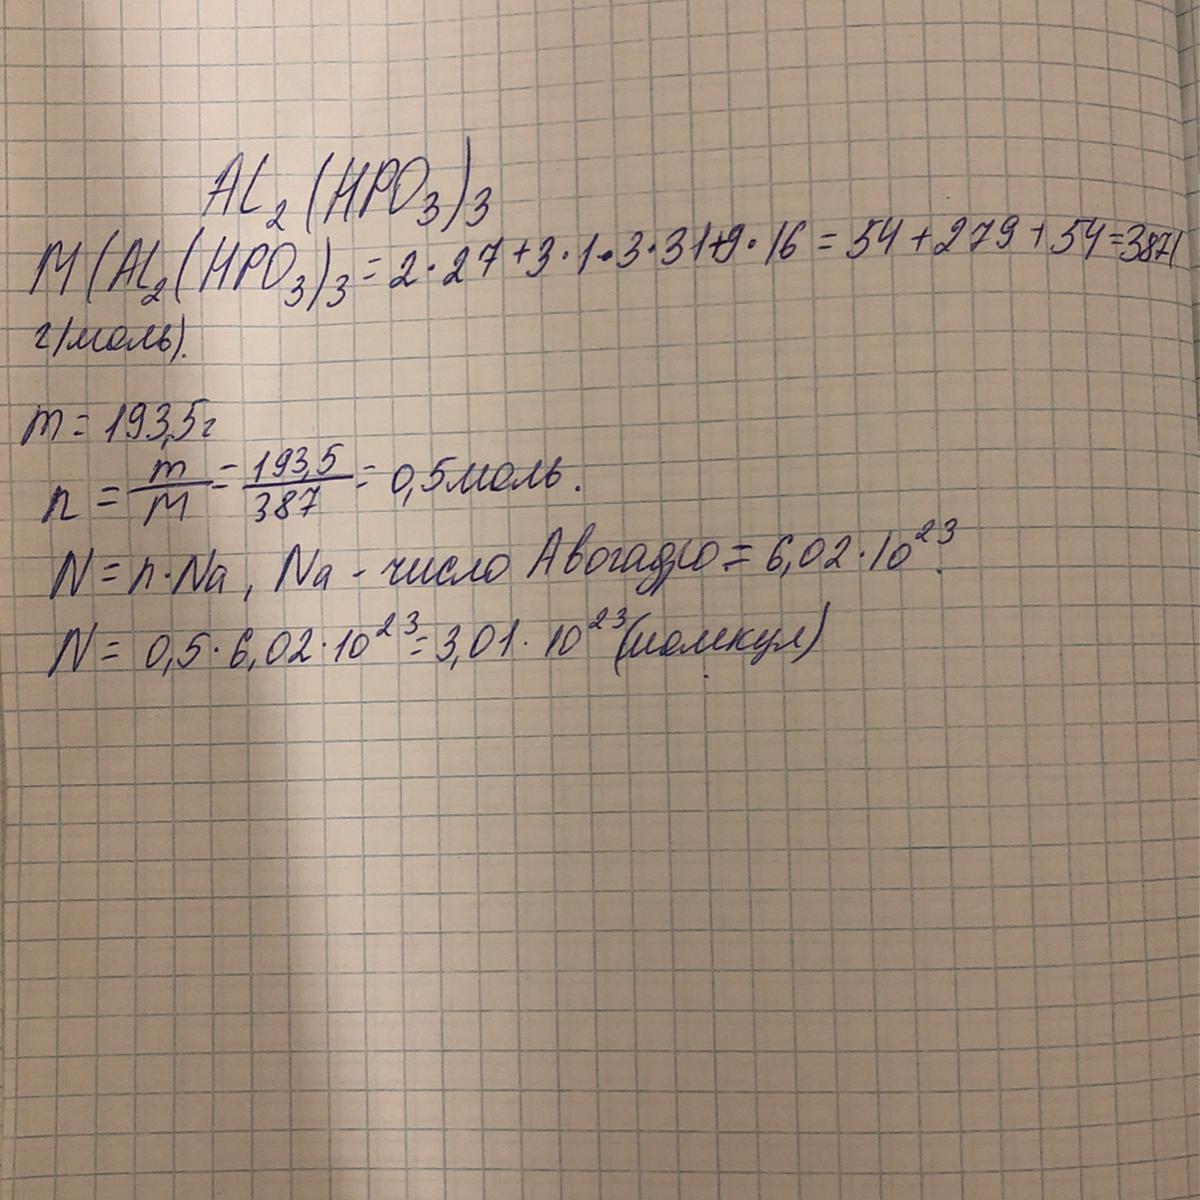 AL₂(HPO₃)₃
M(AL₂(HPO₃)₃ = 2·27+3·1·3·31+9·16 = 54+279+54=387(
г/моль).
m = 193,5г
n = m/M = 193,5/387 = 0,5моль.
N = n·Na, Na - число Авогадро = 6,02·10²³.
N = 0,5·6,02·10²³ = 3,01·10²³(молекул)